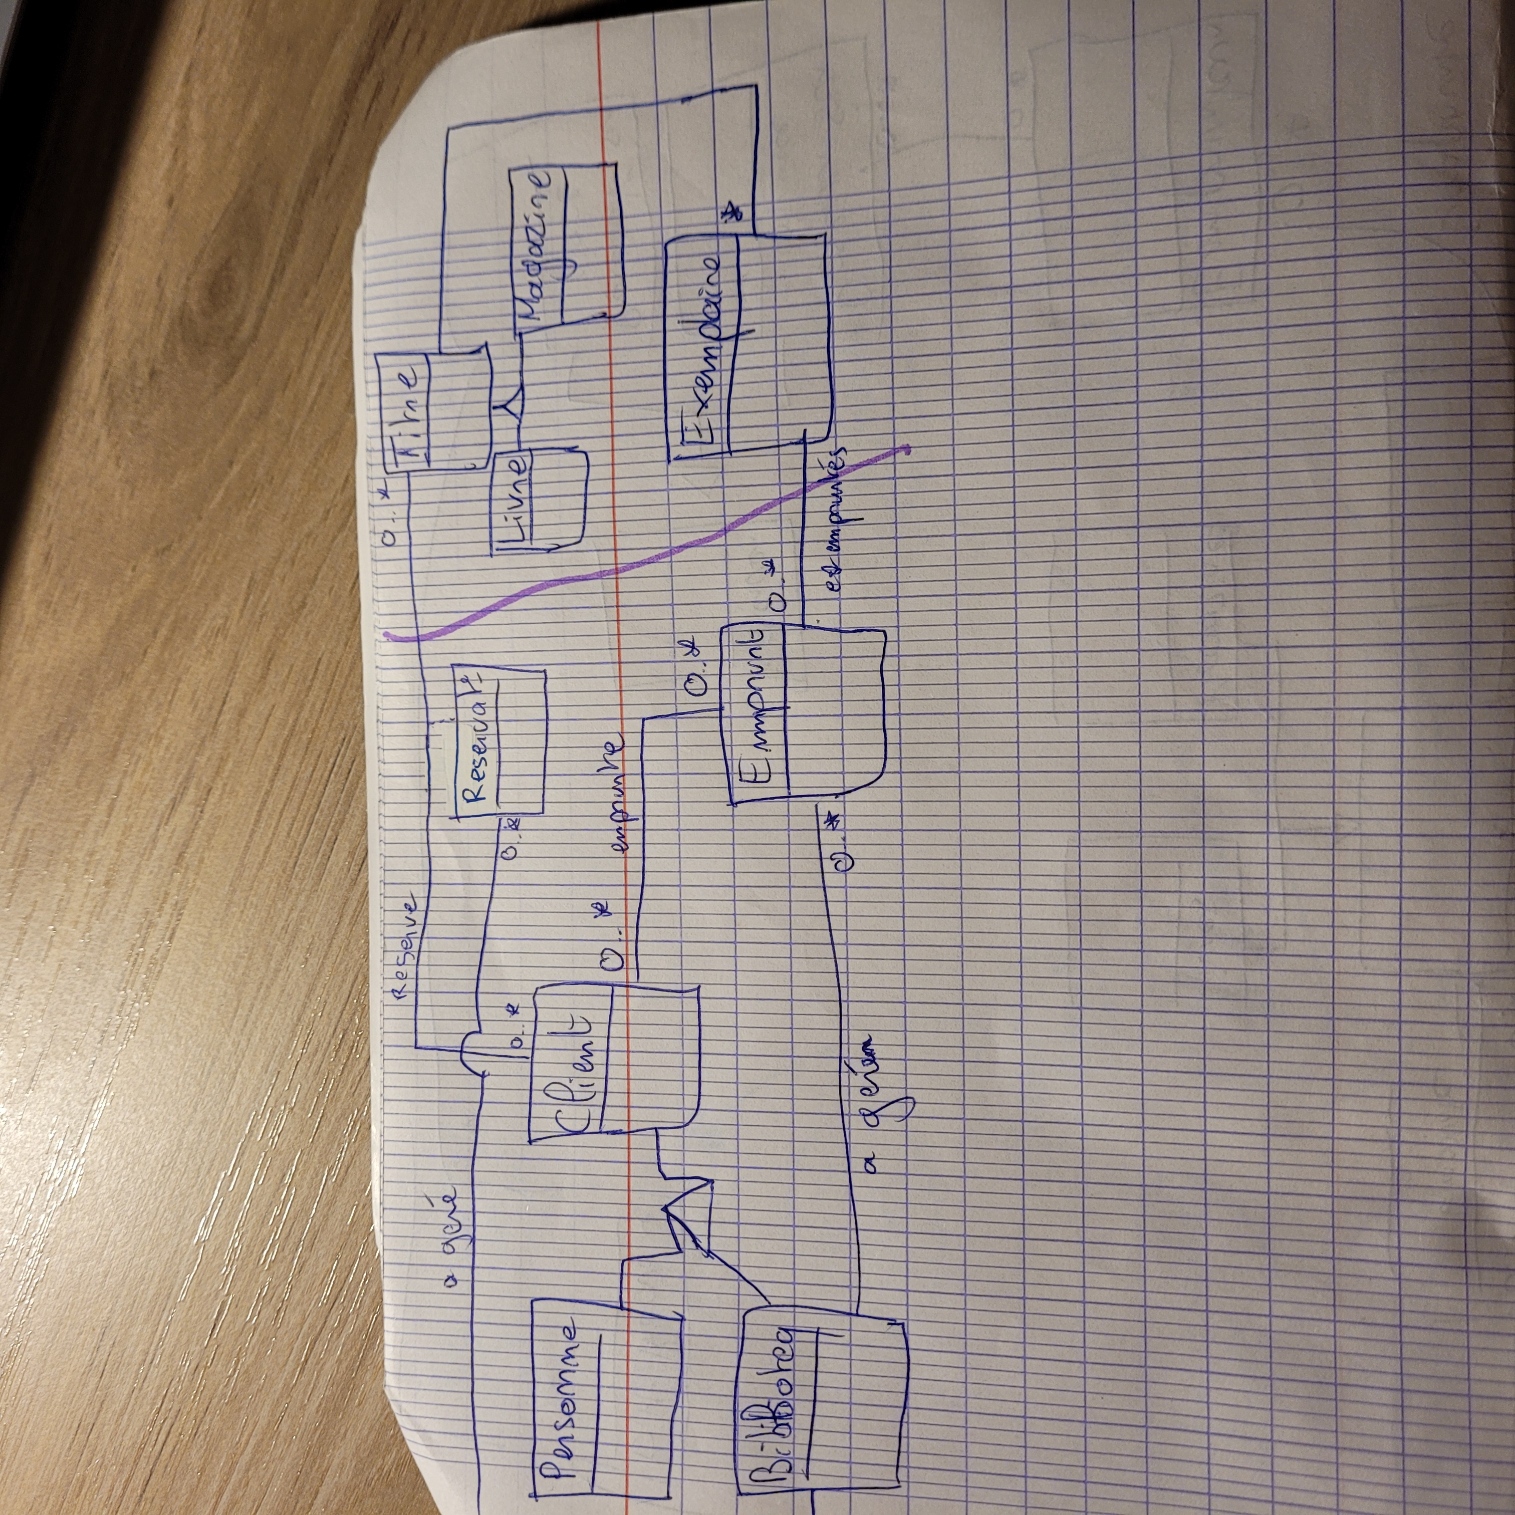 Reserve
0..*
Titre
a geré
Reservat°
0..*
0..*
Livre
Magazine
Personne
Client
0..*
emprunte
0..*
Exemplaire
*
Emprunt
0..*
Biblioteq
est empruntés
0..*
a gerém